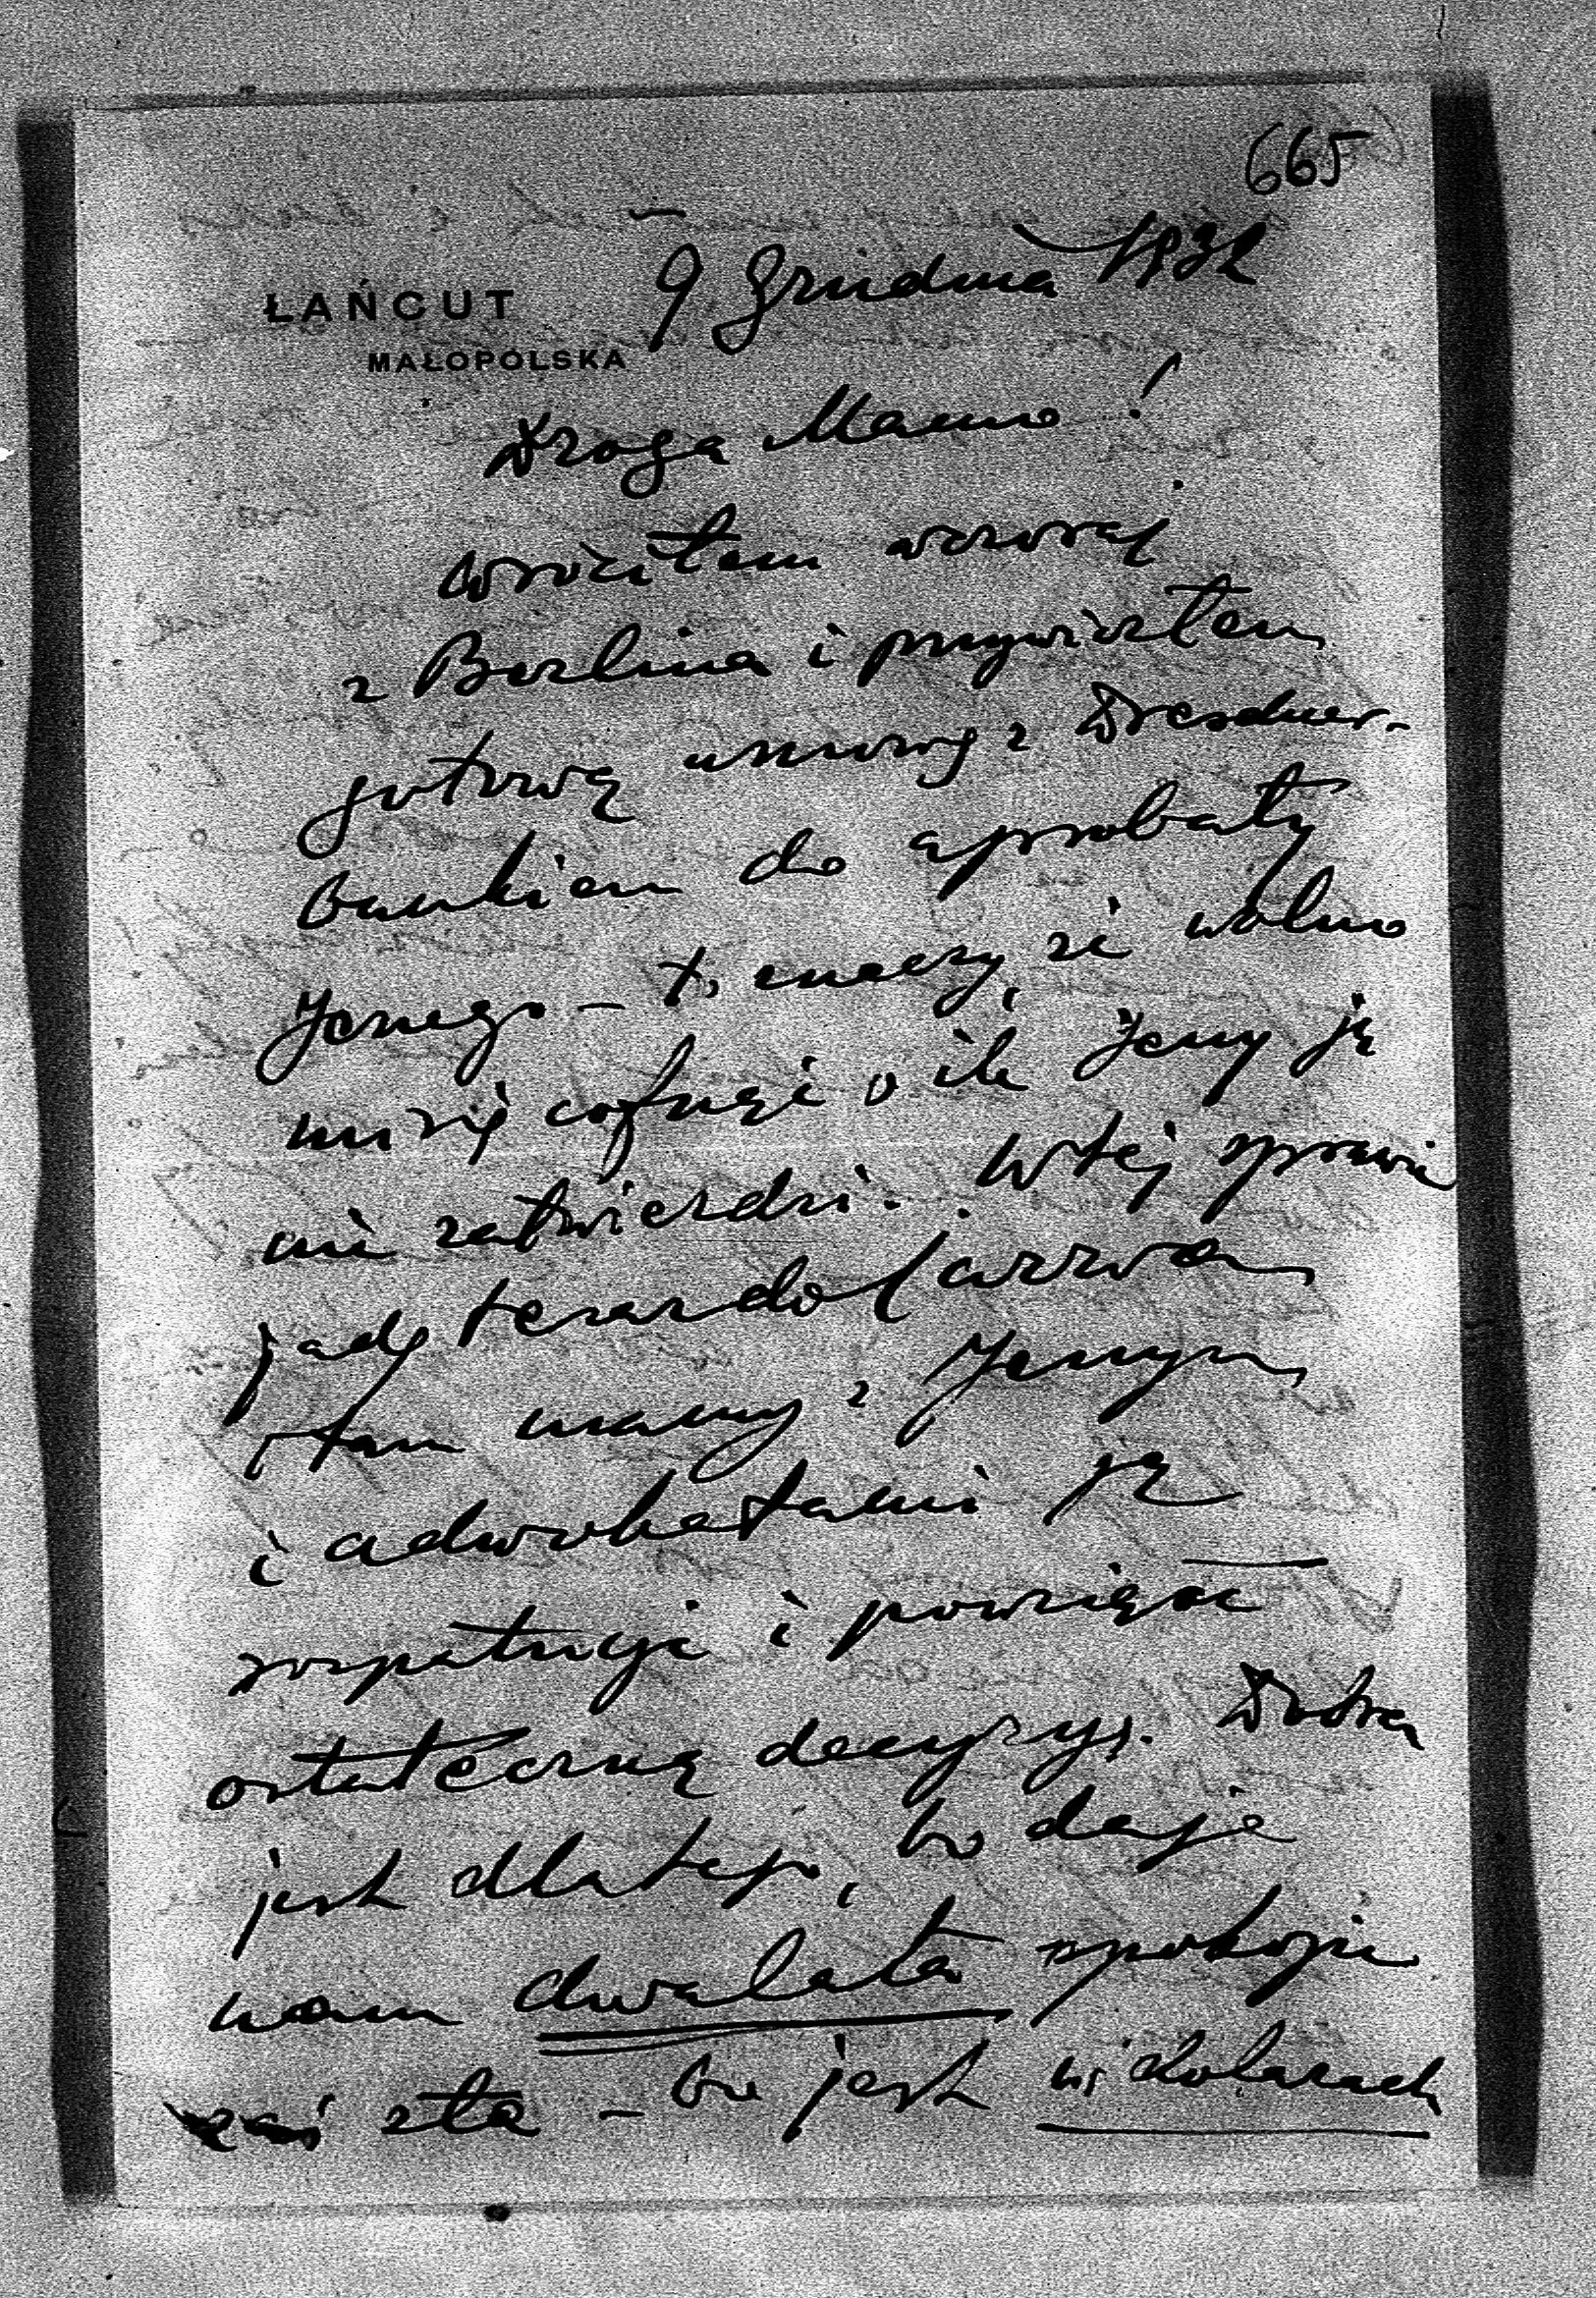 665
ŁAŃCUT 9 Grudnia 1932
MAŁOPOLSKA
Droga Mamo!
wróciłem wczoraj
z Berlina i przywiozłem
gotową umowę z Dresdner-
bankiem do aprobaty
Jerzego – to znaczy, że wolno
mi się cofnąć o ile Jerzy ją
nie zatwierdzi. W tej sprawie
jadę teraz do Warszawy
tam mamy z Jerzym
i adwokatami ją
rozpatrzyć i powziąść
ostateczną decyzyę. Dobrą
jest dlatego, bo daje
nam dwa lata spokoju
zaś zła – bo jest w dolarach